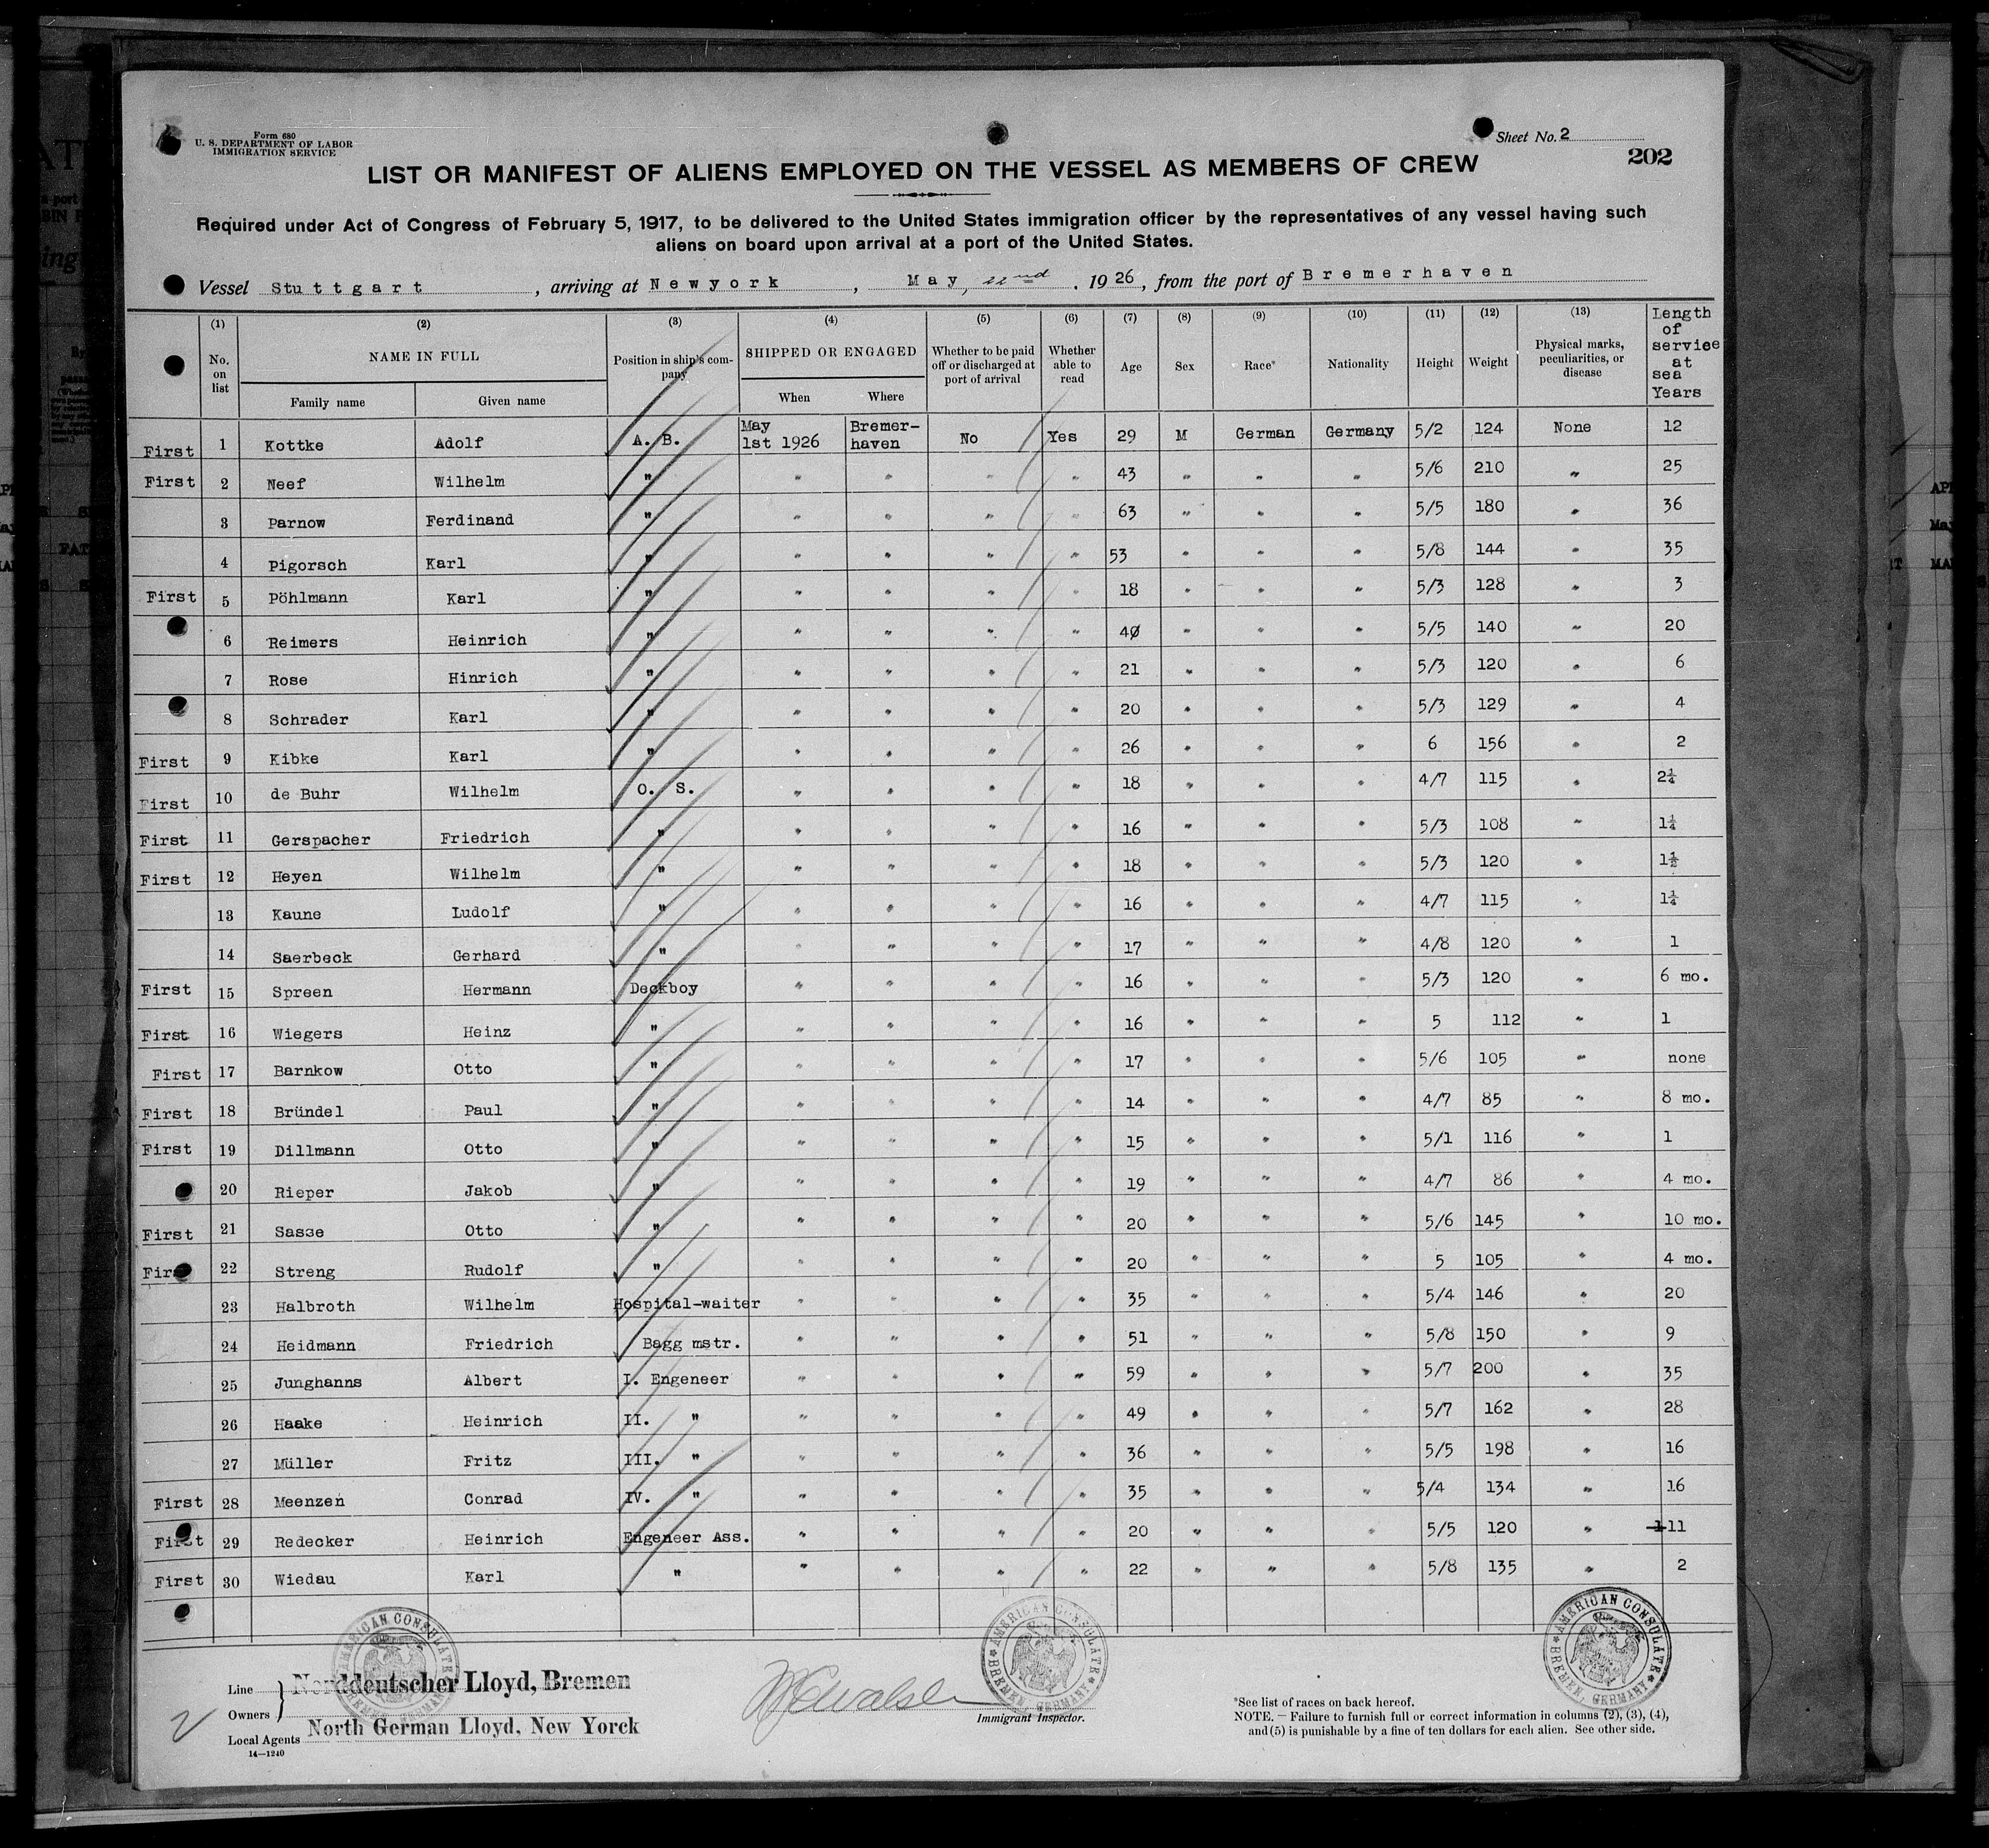 Form 680
U. S. DEPARTMENT OF LABOR
IMMIGRATION SERVICE
Sheet No. 2
202
LIST OR MANIFEST OF ALIENS EMPLOYED ON THE VESSEL AS MEMBERS OF CREW
Required under Act of Congress of February 5, 1917, to be delivered to the United States immigration officer by the representatives of any vessel having such
aliens on board upon arrival at a port of the United States.
Vessel Stuttgart, arriving at Newyork, May, 22nd, 1926, from the port of Bremerhaven
(1) (2) (3) (4) (5) (6) (7) (8) (9) (10) (11) (12) (13)
No. on list
NAME IN FULL
Family name Given name
Position in ship's company
SHIPPED OR ENGAGED
When Where
Whether to be paid off or discharged at port of arrival
Whether able to read
Age Sex Race* Nationality Height Weight
Physical marks, peculiarities, or disease
Length of service at sea Years
First 1 Kottke Adolf A. B. May 1st 1926 Bremer-haven No Yes 29 M German Germany 5/2 124 None 12
First 2 Neef Wilhelm " " " " " 43 " " " 5/6 210 " 25
3 Parnow Ferdinand " " " " " 63 " " " 5/5 180 " 36
4 Pigorsch Karl " " " " " 53 " " " 5/8 144 " 35
First 5 Pöhlmann Karl " " " " " 18 " " " 5/3 128 " 3
6 Reimers Heinrich " " " " " 40 " " " 5/5 140 " 20
7 Rose Hinrich " " " " " 21 " " " 5/3 120 " 6
8 Schrader Karl " " " " " 20 " " " 5/3 129 " 4
First 9 Kibke Karl " " " " " 26 " " " 6 156 " 2
First 10 de Buhr Wilhelm O. S. " " " " 18 " " " 4/7 115 " 2¼
First 11 Gerspacher Friedrich " " " " " 16 " " " 5/3 108 " 1¼
First 12 Heyen Wilhelm " " " " " 18 " " " 5/3 120 " 1½
13 Kaune Ludolf " " " " " 16 " " " 4/7 115 " 1¼
14 Saerbeck Gerhard " " " " " 17 " " " 4/8 120 " 1
First 15 Spreen Hermann Deckboy " " " " 16 " " " 5/3 120 " 6 mo.
First 16 Wiegers Heinz " " " " " 16 " " " 5 112 " 1
First 17 Barnkow Otto " " " " " 17 " " " 5/6 105 " none
First 18 Bründel Paul " " " " " 14 " " " 4/7 85 " 8 mo.
First 19 Dillmann Otto " " " " " 15 " " " 5/1 116 " 1
20 Rieper Jakob " " " " " 19 " " " 4/7 86 " 4 mo.
First 21 Sasse Otto " " " " " 20 " " " 5/6 145 " 10 mo.
First 22 Streng Rudolf " " " " " 20 " " " 5 105 " 4 mo.
23 Halbroth Wilhelm Hospital-waiter " " " " 35 " " " 5/4 146 " 20
24 Heidmann Friedrich Bagg mstr. " " " " 51 " " " 5/8 150 " 9
25 Junghanns Albert I. Engeneer " " " " 59 " " " 5/7 200 " 35
26 Haake Heinrich II. " " " " " 49 " " " 5/7 162 " 28
27 Müller Fritz III. " " " " " 36 " " " 5/5 198 " 16
First 28 Meenzen Conrad IV. " " " " " 35 " " " 5/4 134 " 16
First 29 Redecker Heinrich Engeneer Ass. " " " " 20 " " " 5/5 120 " 11
First 30 Wiedau Karl " " " " " 22 " " " 5/8 135 " 2
AMERICAN CONSULATE BREMEN, GERMANY
AMERICAN CONSULATE BREMEN, GERMANY
AMERICAN CONSULATE BREMEN, GERMANY
Line Norddeutscher Lloyd, Bremen
Owners
Local Agents North German Lloyd, New Yorck
14—1240
Immigrant Inspector.
*See list of races on back hereof.
NOTE.—Failure to furnish full or correct information in columns (2), (3), (4),
and (5) is punishable by a fine of ten dollars for each alien. See other side.